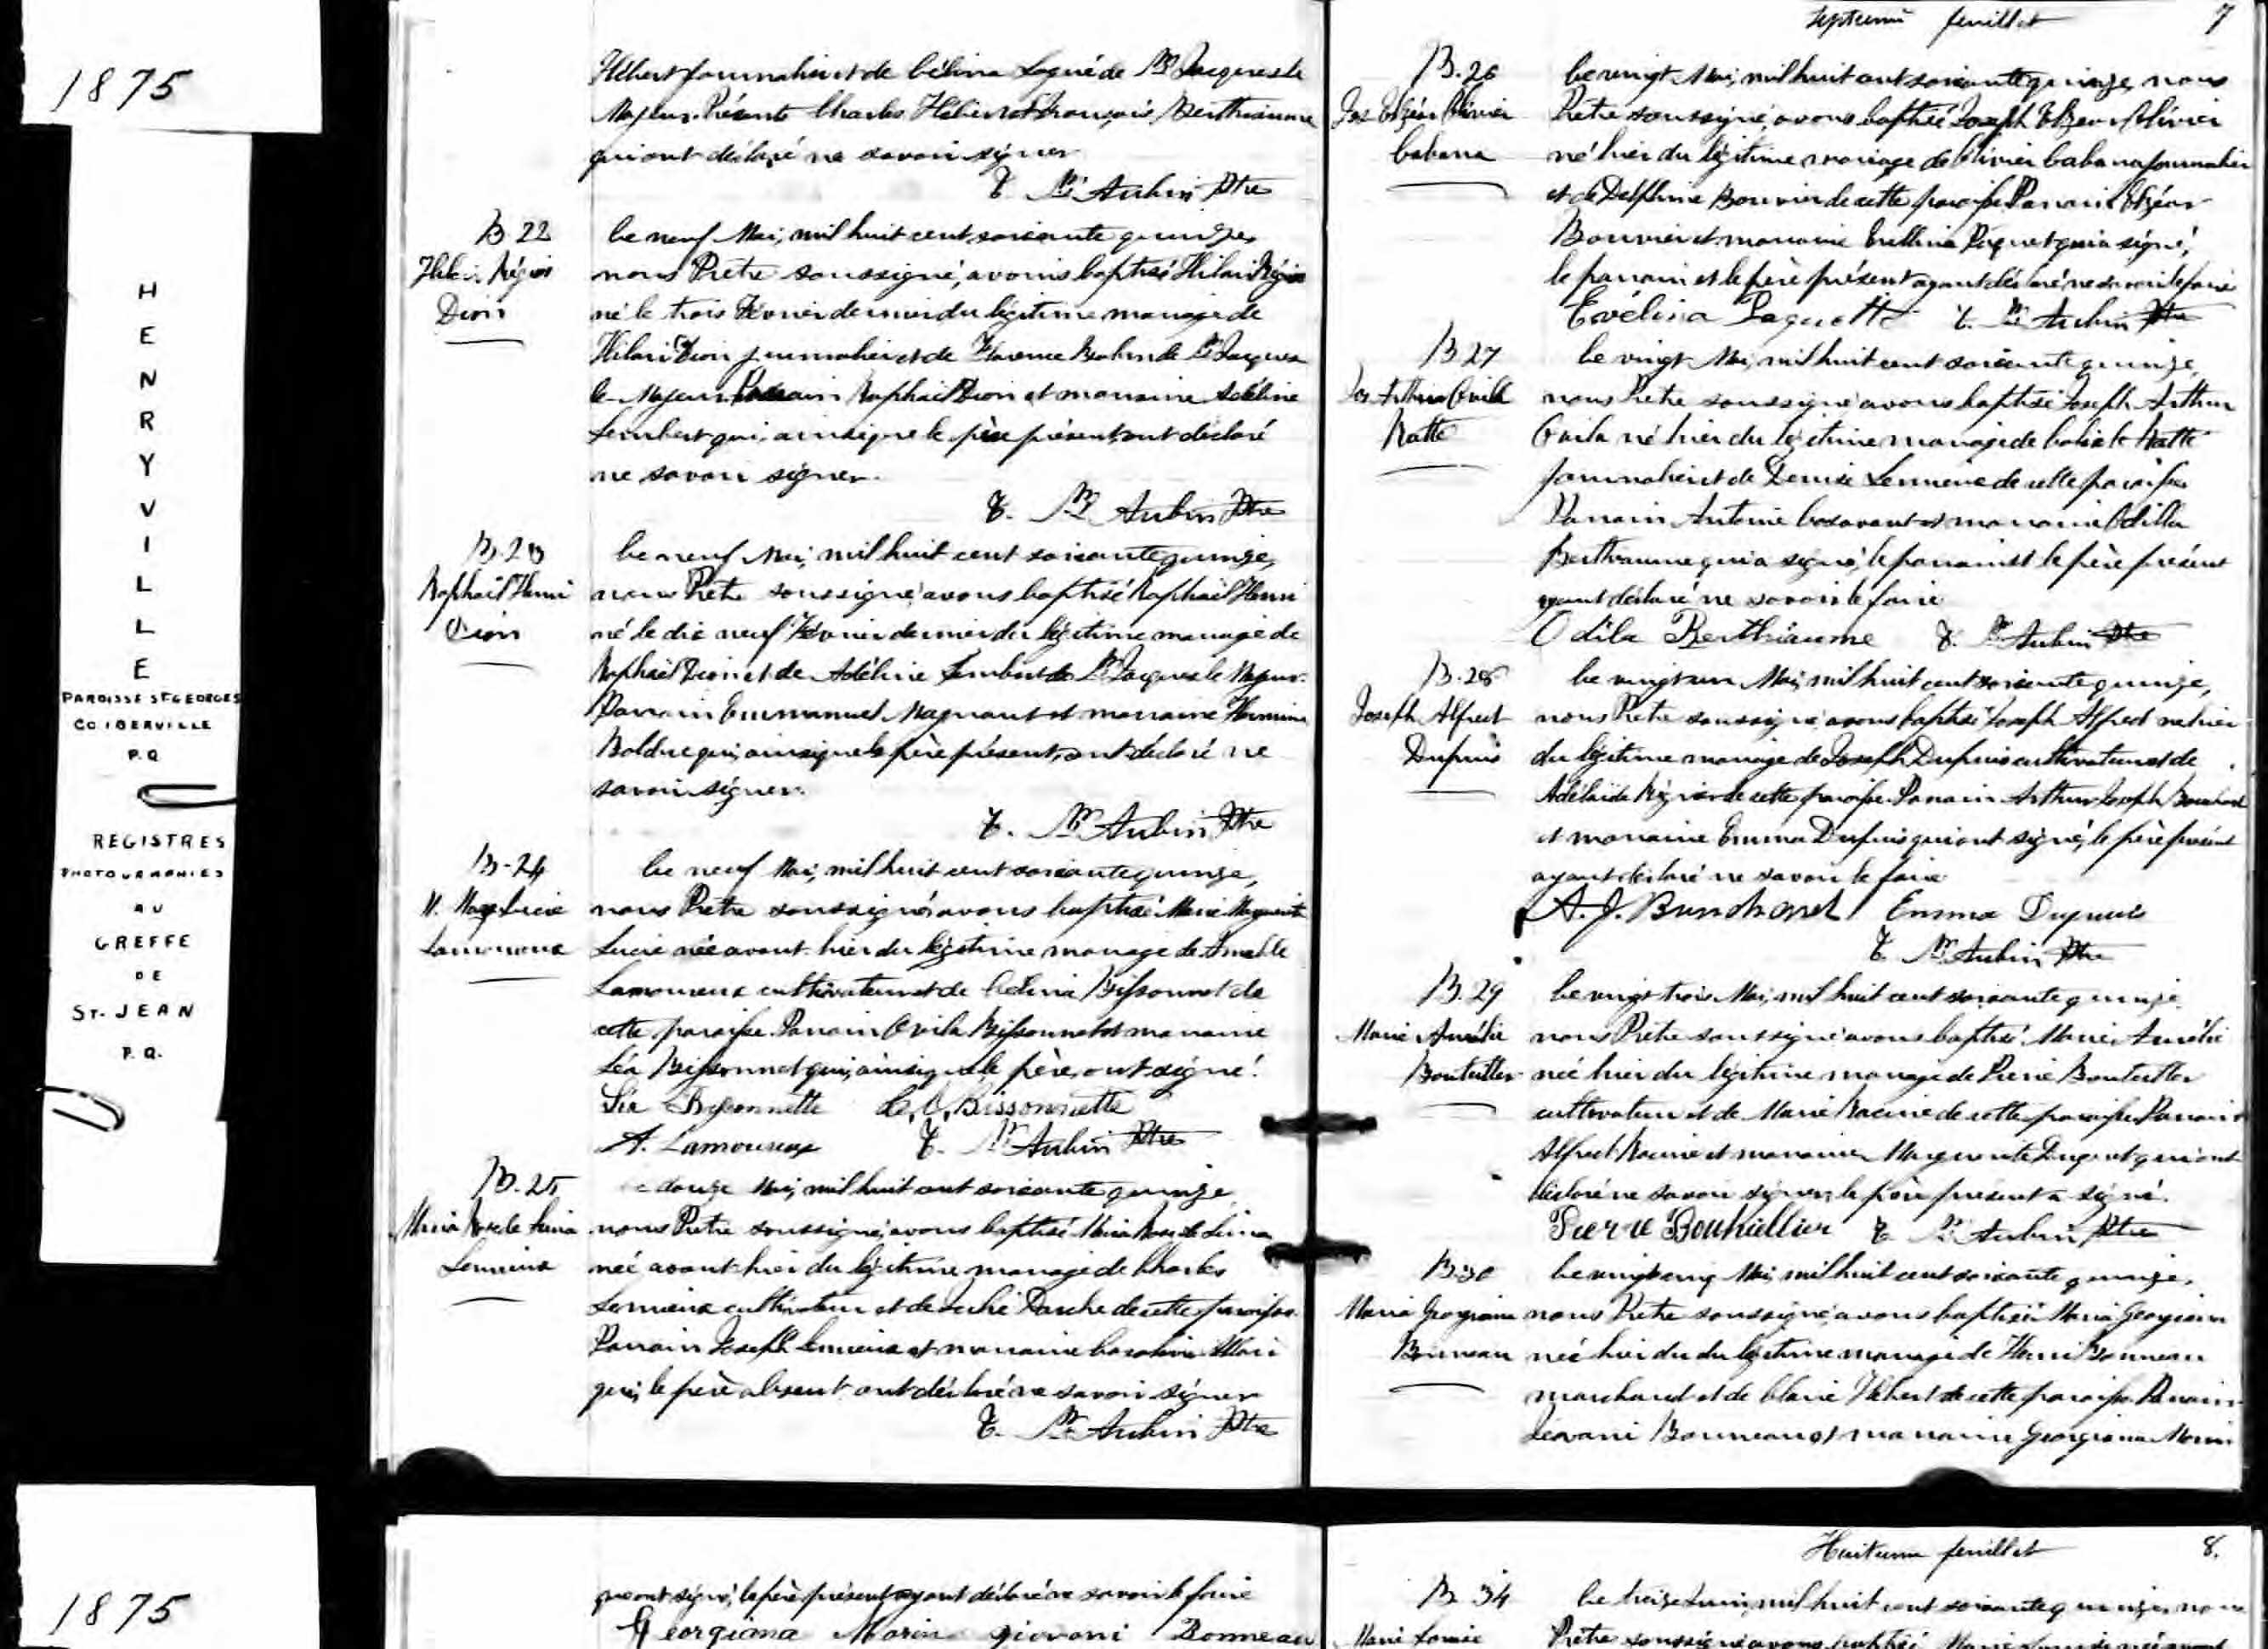 1875
HENRYVILLE
PAROISSE ST GEORGES
CO IBERVILLE
P.Q
REGISTRES
PHOTOGRAPHIES
AU
GREFFE
DE
ST. JEAN
P.Q.
1875
Hébert journalier et de Célina Lagué de St Jacques le
Majeur. Présents Charles Hébert et François Berthiaume
qui ont déclaré ne savoir signer
F. St Aubin Ptre
B. 22
Hilaire Régis
Dion
Le neuf Mai, mil huit cent soixante quinze,
nous Prêtre soussigné, avons baptisé Hilaire Régis
né le trois Février dernier du légitime mariage de
Hilaire Dion journalier et de Florence de St Jacques
le Majeur Parrain Raphaël Dion et marraine Adéline
Lambert qui, ainsi que le père présent, ont déclaré
ne savoir signer.
F. St Aubin Ptre
B. 23
Raphaël Henri
Dion
Le neuf Mai, mil huit cent soixante quinze,
nous Prêtre soussigné avons baptisé Raphaël Henri
né le dix neuf Février dernier du légitime mariage de
Raphaël Dion et de Adéline Lambert de St Jacques le Majeur.
Parrain Emmanuel Magnant et marraine Hermine
Bolduc qui, ainsi que le père présent, ont déclaré ne
savoir signer.
F. St Aubin Ptre
B. 24
M. Marg Lucie
Lamoureux
Le neuf Mai, mil huit cent soixante quinze,
nous Prêtre soussigné avons baptisé Marie Marguerite
Lucie née avant hier du légitime mariage de Amable
Lamoureux cultivateur et de Célina Bissonnet de
cette paroisse. Parrain Ovila Bissonnet et marraine
Léa Bissonnet qui, ainsi que le père, ont signé.
Léa Bissonnette C. O. Bissonnette
A. Lamoureux F. St Aubin Ptre
B. 25
Marie Rose de Lima
Lemieux
Le douze Mai, mil huit cent soixante quinze
nous Prêtre soussigné, avons baptisé Marie Rose de Lima
née avant hier du légitime mariage de Charles
Lemieux cultivateur et de Darche de cette paroisse.
Parrain Joseph Lemieux et marraine Caroline
qui, le père absent ont déclaré ne savoir signer
F. St Aubin Ptre
Septième feuillet 7
B. 26
Jos Elzéar Olivier
Cabana
Le vingt Mai, mil huit cent soixante quinze, nous
Prêtre soussigné, avons baptisé Joseph Elzéar Olivier
né hier du légitime mariage de Olivier Cabana journalier
et de Delphine Bouvier de cette paroisse Parrain Elzéar
Bouvier et marraine Evellina Paquet qui a signé,
le parrain et le père présent ayant déclaré ne savoir le faire
Evélina Paquette F. St Aubin Ptre
B. 27
Jos Arthur Ovila
Natte
Le vingt Mai, mil huit cent soixante quinze,
nous Prêtre soussigné avons baptisé Joseph Arthur
Ovila né hier du légitime mariage de Calixte Natte
journalier et de Denise Lemieux de cette paroisse
Parrain Antoine Casavant et marraine Odilla
Berthiaume qui a signé, le parrain et le père présent
ayant déclaré ne savoir le faire
Odila Berthiaume F. St Aubin Ptre
B. 28
Joseph Alfred
Dupuis
Le vingt un Mai, mil huit cent soixante quinze,
nous Prêtre soussigné avons baptisé Joseph Alfred né hier
du légitime mariage de Joseph Dupuis cultivateur et de
Adélaïde Régnier de cette paroisse. Parrain Arthur Joseph Bouchard
et marraine Emma Dupuis qui ont signé, le père présent
ayant déclaré ne savoir le faire
A. J. Bouchard Emma Dupuis
F. St Aubin Ptre
B. 29
Marie Aurélie
Bouteiller
Le vingt trois Mai, mil huit cent soixante quinze
nous Prêtre soussigné avons baptisé Marie Aurélie
née hier du légitime mariage de Pierre Bouteiller
cultivateur et de Marie Racine de cette paroisse Parrain
Alfred Racine et marraine Marguerite Duquet qui ont
déclaré ne savoir signer, le père présent a signé.
Pierre Bouthillier F. St Aubin Ptre
B. 30
Marie Georgiana
Bonneau
Le vingt cinq Mai, mil huit cent soixante quinze,
nous Prêtre soussigné, avons baptisé Marie Georgiana
née hier du du légitime mariage de Henri Bonneau
marchand et de Claire Hébert de cette paroisse. Parrain
Geovani Bonneau et marraine Georgiana Morin
qui ont signé, le père présent ayant déclaré ne savoir le faire
Georgiana Morin giovani Bonneau
Huitième feuillet 8.
B. 34
Marie Louise
Le treize Juin, mil huit cent soixante quinze, nous
Prêtre soussigné avons baptisé Marie Louise née avant